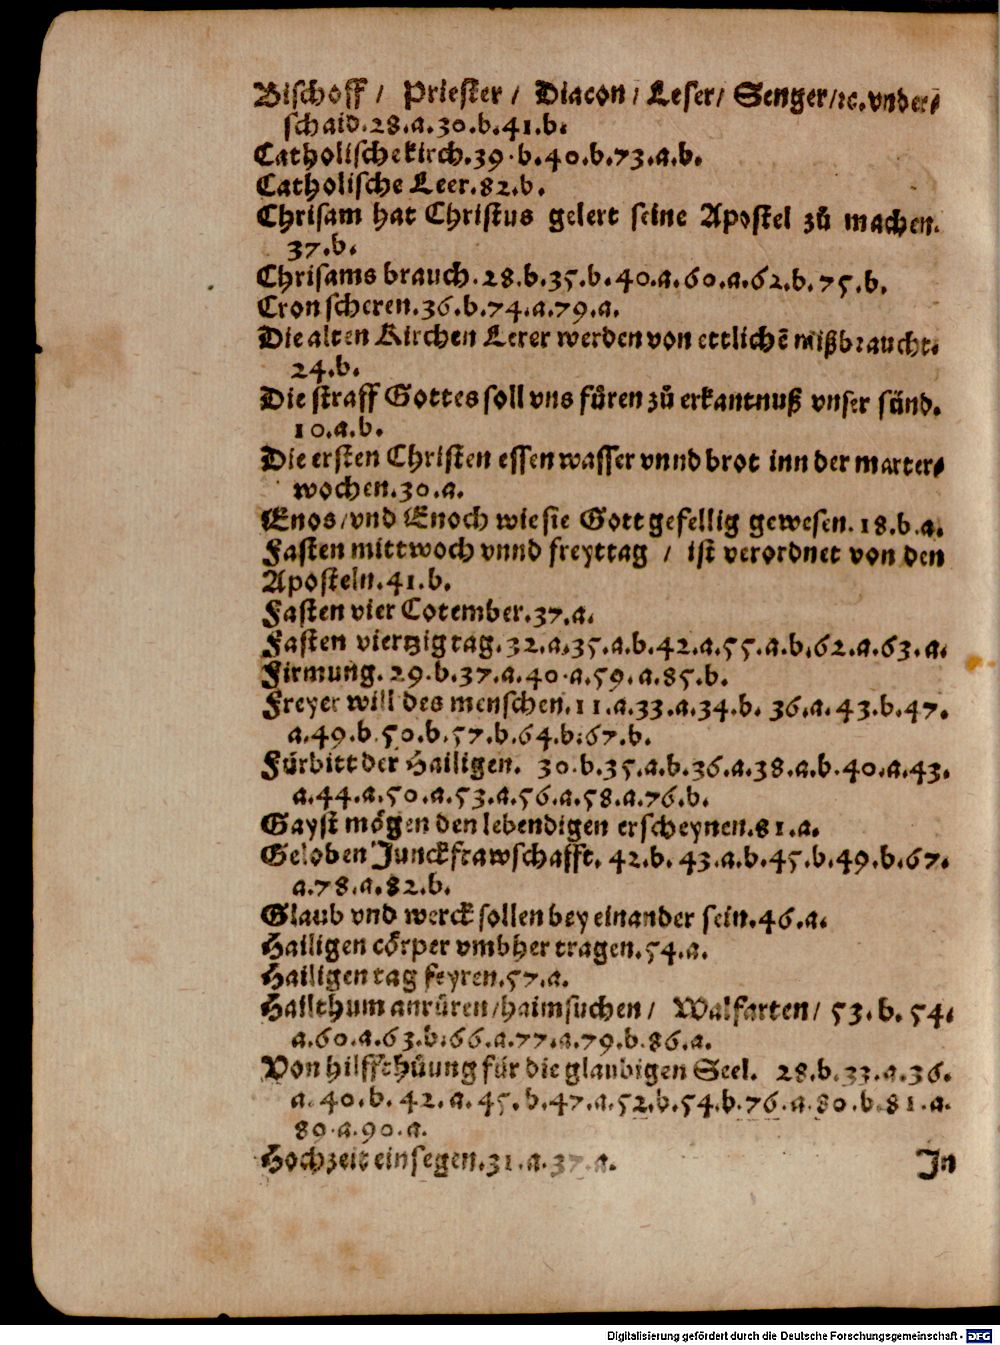 Bischoff / Priester / Diacon / Leser / Senger / ꝛc. vnder⸗
schaid. 28. a. 30. b. 41. b.
Catholische kirch. 39. b. 40. b. 73. a. b.
Catholische Leer. 82. b.
Chrisam hat Christus gelert seine Apostel zů machen.
37. b.
Chrisams brauch. 28. b. 35. b. 40. a. 60. a. 62. b. 75. b.
Cron scheren. 36. b. 74. a. 79. a.
Die alten Kirchen Lerer werden von ettlichē mißbraucht.
24. b.
Die straff Gottes soll vns fůren zů erkantnuß vnser sünd.
10. a. b.
Die ersten Christen essen wasser vnnd brot inn der marter⸗
wochen. 30. a.
Enos / vnd Enoch wie sie Gott gefellig gewesen. 18. b. a.
Fasten mittwoch vnnd freyttag / ist verordnet von den
Aposteln. 41. b.
Fasten vier Cotember. 37. a.
Fasten viertzig tag. 32. a. 35. a. b. 42. a. 55. a. b. 62. a. 63. a.
Firmung. 29. b. 37. a. 40. a. 59. a. 85. b.
Freyer will des menschen. 11. a. 33. a. 34. b. 36. a. 43. b. 47.
a. 49. b. 50. b. 57. b. 64. b. 67. b.
Fürbitt der Hailigen. 30. b. 35. a. b. 36. a. 38. a. b. 40. a. 43.
a. 44. a. 50. a. 53. a. 56. a. 58. a. 76. b.
Gayst mögen den lebendigen erscheynen. 81. a.
Geloben Junckfrawschafft. 42. b. 43. a. b. 45. b. 49. b. 67.
a. 78. a. 82. b.
Glaub vnd werck sollen bey einander sein. 46. a.
Hailigen cörper vmbher tragen. 54. a.
Hailigen tag feyren. 57. a.
Hailthum anrůren / haimsuchen / Walfarten / 53. b. 54.
a. 60. a. 63. b. 66. a. 77. a. 79. b. 86. a.
Von hilffthůung für die glaubigen Seel. 28. b. 33. a. 36.
a. 40. b. 42. a. 45. b. 47. a. 52. b. 54. b. 76. a. 80. b. 81. a.
89. a. 90. a.
Hochzeit einsegen. 31. a. 37. a.
In
Digitalisierung gefördert durch die Deutsche Forschungsgemeinschaft - DFG